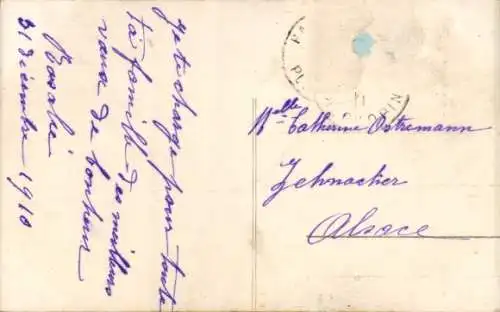 Je te charge pour toute
ta famille des meilleurs
vœux de bonheur
Rosalie
31 décembre 1910
Melle Catherine Ostremann
Zehnacker
Alsace